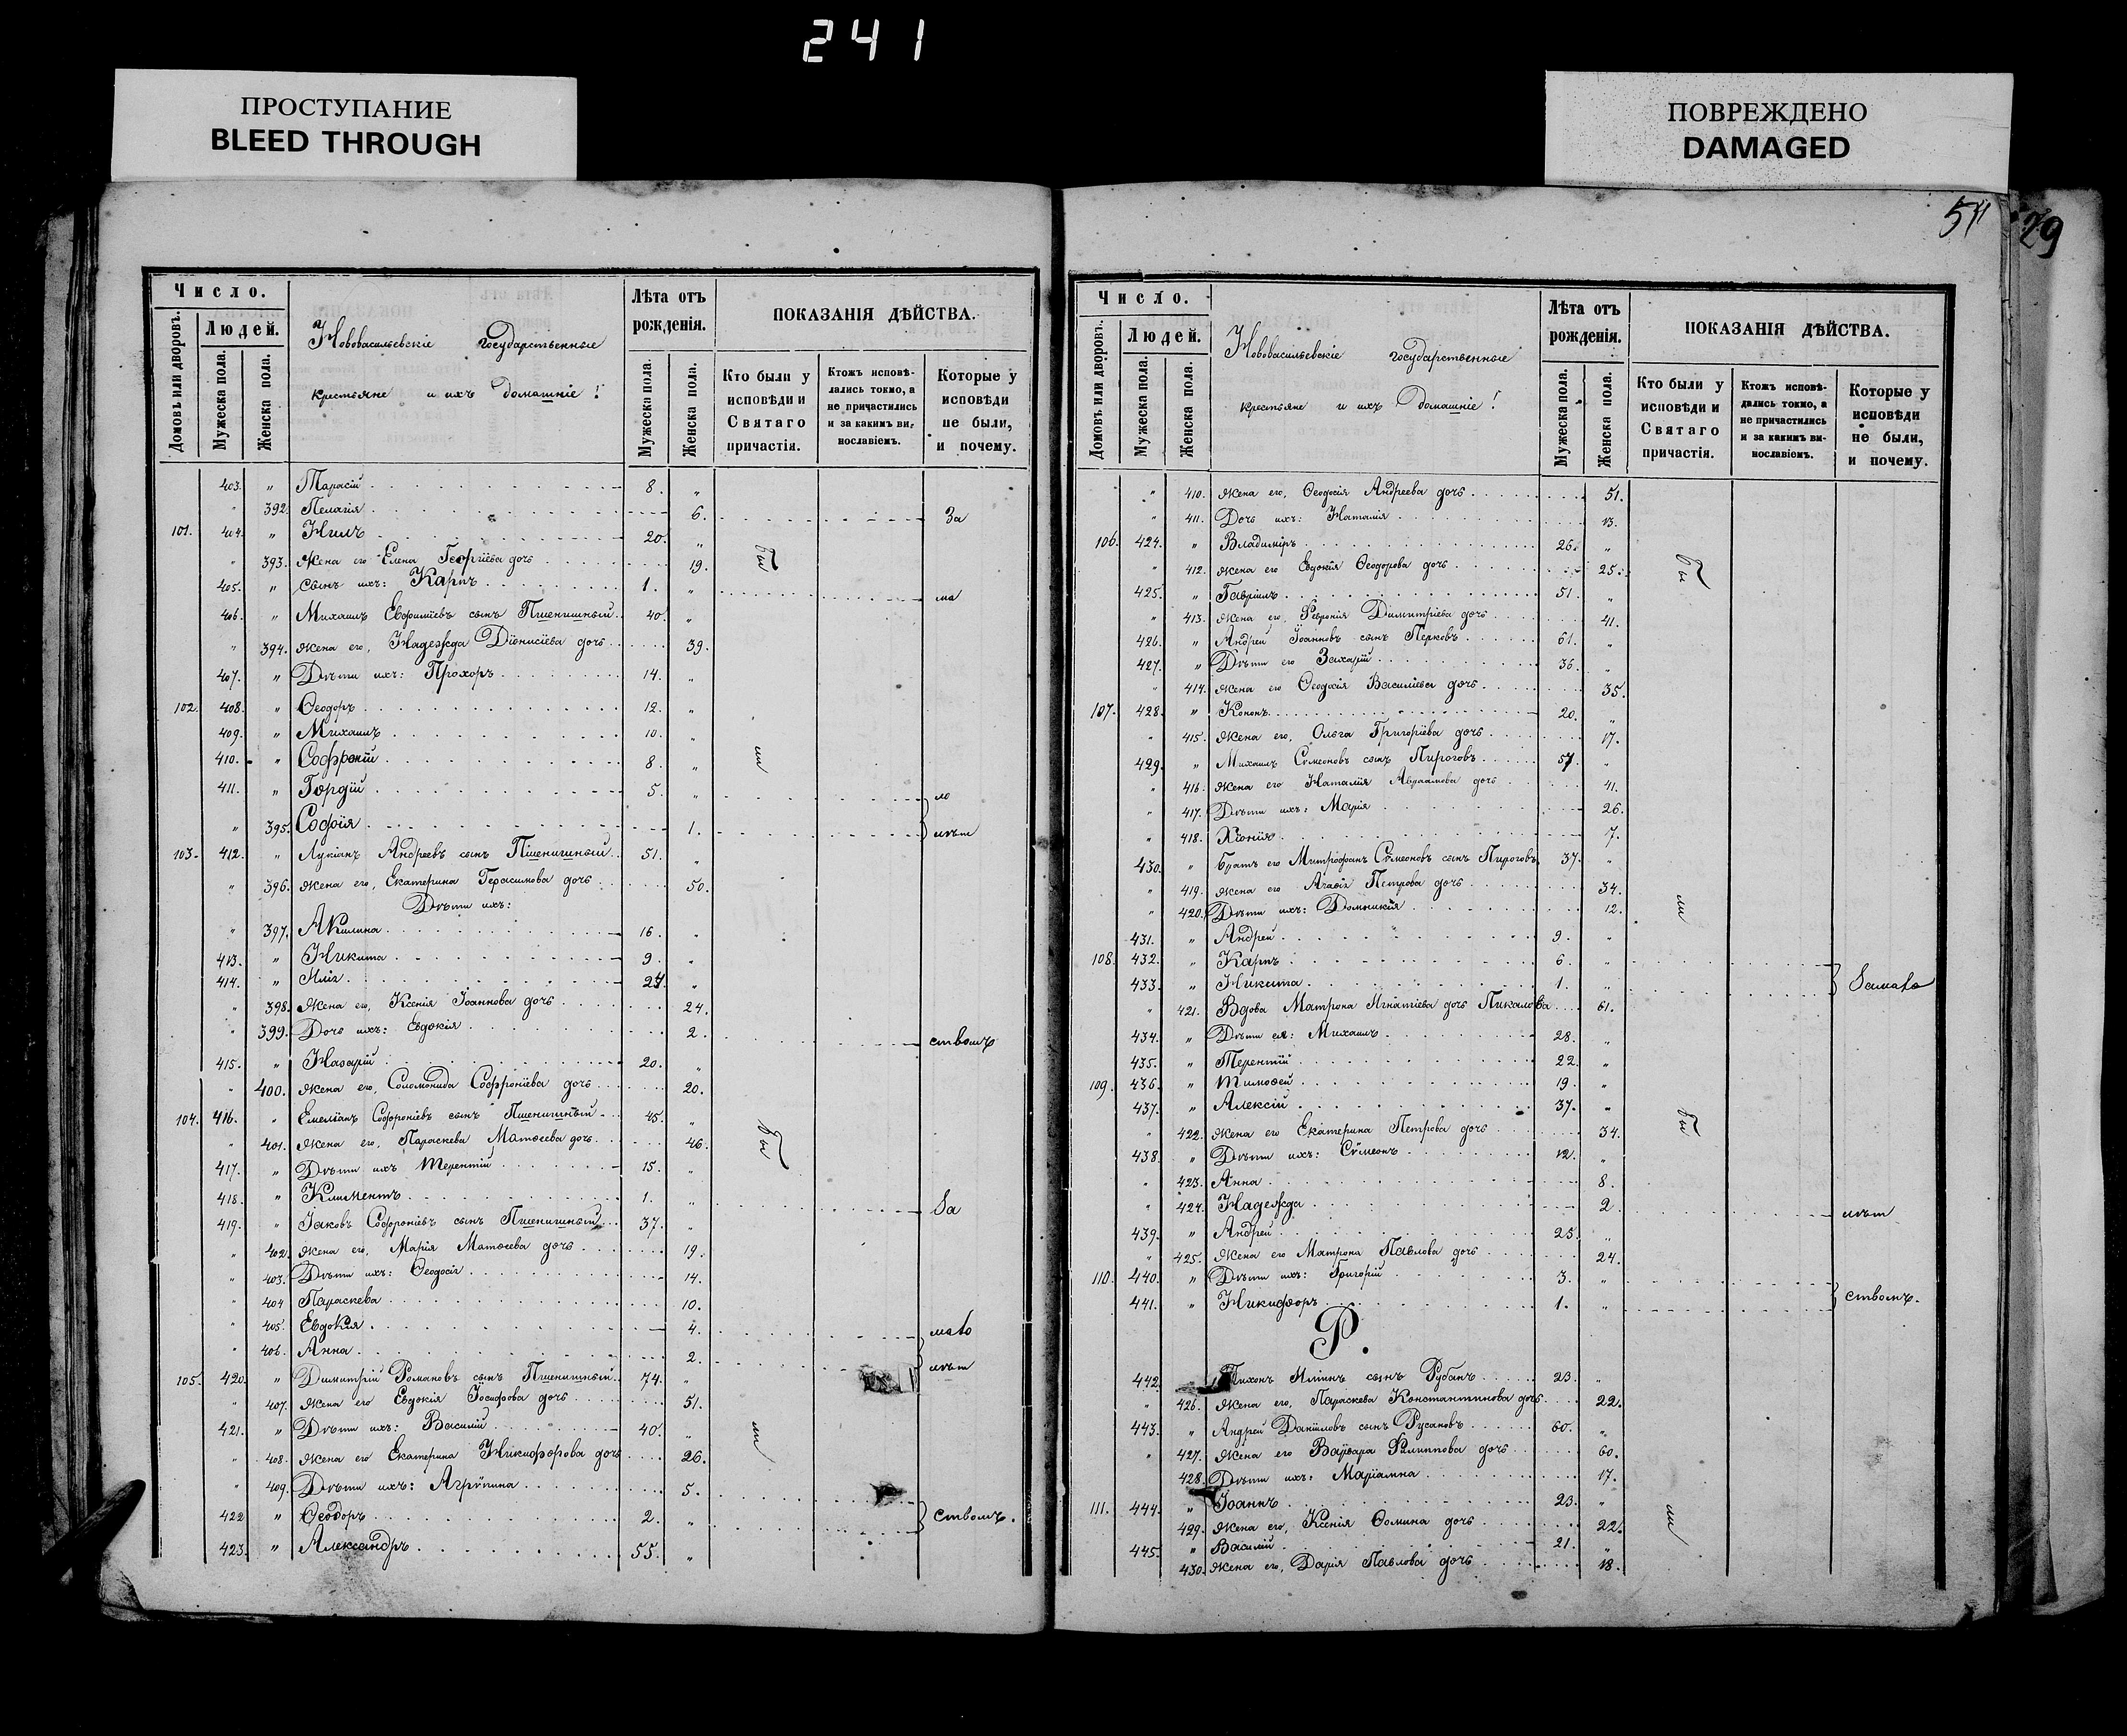 241
ПРОСТУПАНИЕ
BLEED THROUGH
ПОВРЕЖДЕНО
DAMAGED
29
Число.
Людей.
Домовъ или дворовъ.
Мужеска пола.
Женска пола.
Нововасильевскіе государственные
крестьяне и ихъ домашніе!
Лѣта отъ рожденія.
Мужеска пола.
Женска пола.
ПОКАЗАНІЯ ДѢЙСТВА.
Кто были у исповѣди и Святаго причастія.
Ктожъ исповѣдались токмо, а не причастились и за какимъ винословіемъ.
Которые у исповѣди не были, и почему.
403. " Тарасій 8. "
" 392. Пелагія 6. За
101. 404. " Нилъ 20. "
" 393. Жена его Елена Георгіева дочь 19.
405. " Сынъ ихъ: Карпъ 1. " ма
406. " Михаилъ Евфиміевъ сынъ Пшенишный 40. "
" 394. Жена его, Надежда Діонисіева дочь 39.
407. " Дѣти ихъ: Прохоръ 14. "
102. 408. " Ѳеодоръ 12. "
409. " Михаилъ 10. "
410. " Софроній 8. "
411. " Гордій 5. " ло
" 395. Софія 1. лѣт
103. 412. " Лукіанъ Андреевъ сынъ Пшенишный 51. "
" 396. Жена его, Екатерина Герасимова дочь 50.
Дѣти ихъ:
" 397. Акилина 16. "
413. " Никита 9. "
414. " Илія "
" 398. Жена его, Ксенія Іоаннова дочь 24.
" 399. Дочь ихъ: Евдокія 2. ствомъ
415. " Назарій 20. "
" 400. Жена его, Соломонида Софроніева дочь 20.
104. 416. " Емеліанъ Софроніевъ сынъ Пшенишный 45. "
" 401. Жена его, Параскева Матѳеева дочь 46.
417. " Дѣти ихъ Терентій 15. "
418. " Климентъ 1. " За
419. " Іаковъ Софроніевъ сынъ Пшенишный 37. "
" 402. Жена его, Марія Матѳеева дочь 19.
" 403. Дѣти ихъ: Ѳеодосія 14.
" 404 Параскева 10.
" 405. Евдокія 4. мало
" 406. Анна 2. лѣт
105. 420. " Димитрій Романовъ сынъ Пшенишный 74. "
" 407. Жена его Евдокія Іосифова дочь 51.
421. " Дѣти ихъ: Василій 40. "
" 408. Жена его Екатерина Никифорова дочь 26.
" 409. Дѣти ихъ: Агрѵпина 5.
422 " Ѳеодоръ 2. " ствомъ.
423. " Александръ 55. "
бы
ли
бы
ли
Число.
Людей.
Домовъ или дворовъ.
Мужеска пола.
Женска пола.
Нововасильевскіе государственные
крестьяне и ихъ домашніе!
Лѣта отъ рожденія.
Мужеска пола.
Женска пола.
ПОКАЗАНІЯ ДѢЙСТВА.
Кто были у исповѣди и Святаго причастія.
Ктожъ исповѣдались токмо, а не причастились и за какимъ винословіемъ.
Которые у исповѣди не были, и почему.
" 410. Жена его, Ѳеодосія Андреева дочь 51.
" 411. Дочь ихъ: Наталія 13.
106. 424. " Владиміръ 26. "
" 412. Жена его Евдокія Ѳеодорова дочь 25.
425. " Гавріилъ 51. "
" 413. Жена его, Февронія Димитріева дочь 41.
426. " Андрей Іоанновъ сынъ Перковъ 61. "
427. " Дѣти его Захарій 36. "
" 414. Жена его Ѳеодосія Василіева дочь 35.
107. 428. " Кононъ 20. "
" 415. Жена его, Ольга Григоріева дочь 17.
429. " Михаилъ Сѵмеоновъ сынъ Пироговъ "
" 416. Жена его Наталія Авраамова дочь 41.
" 417. Дѣти ихъ: Марія 26.
" 418. Хіонія 7.
430. " Братъ его Митрофанъ Сѵмеоновъ сынъ Пироговъ 37. "
" 419. Жена его Агаѳія Петрова дочь 34.
" 420. Дѣти ихъ: Домникія 12.
431. " Андрей 9. "
108. 432. " Карпъ 6. "
433. " Никита 1. " Замало
" 421. Вдова Матрона Игнатіева дочь Пикалова 61.
434. " Дѣти ея: Михаилъ 28. "
435. " Терентій 22. "
109. 436. " Тимоѳей 19. "
437. " Алексій 37. "
" 422. Жена его Екатерина Петрова дочь 34.
438. " Дѣти ихъ: Сѵмеонъ 12. "
" 423. Анна 8.
" 424. Надежда 2. лѣт
439. " Андрей 25. "
" 425. Жена его Матрона Павлова дочь 24.
110. 440. " Дѣти ихъ: Григорій 3. "
441. " Никифоръ 1. " ствомъ.
Р.
442. Тихонъ Иліинъ сынъ Рубанъ 23. "
" 426. Жена его, Параскева Константинова дочь 22.
443. " Андрей Даніиловъ сынъ Русановъ 60. "
" 427. Жена его Варвара Филиппова дочь 60.
428. Дѣти ихъ: Маріамна 17.
111. 444. " Іоаннъ 23. "
429. Жена его, Ксенія Ѳомина дочь 22.
445. " Василій 21. "
430. Жена его, Дарія Павлова дочь 18.
бы
ли
бы
ли